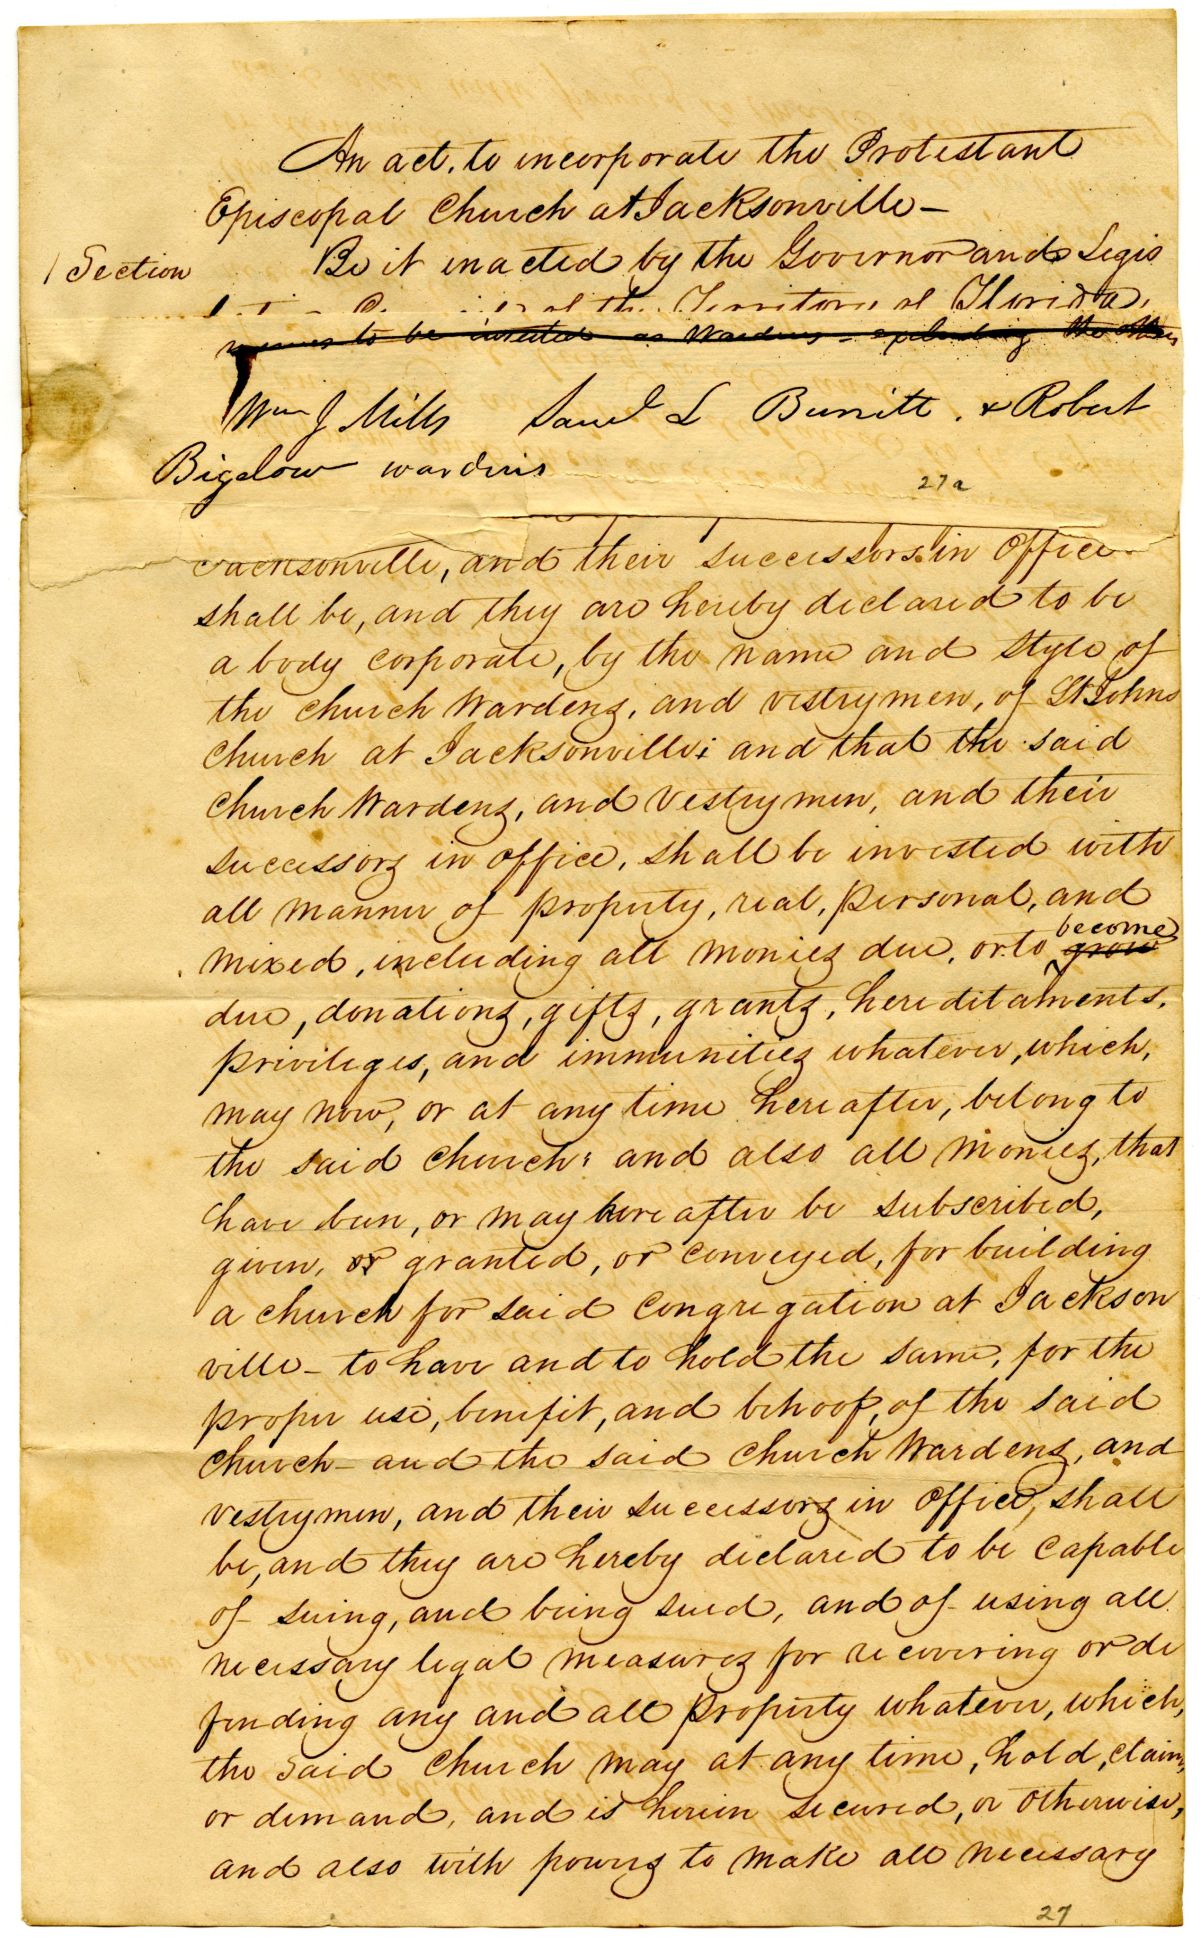 An act. to incorporate the Protestant
Episcopal Church at Jacksonville –
1 Section Be it enacted by the Governor and Legis
of the Territory of Florida,
to be invested as Wardens – excluding the
Wm J Mills Saml L Burritt. & Robert
Bigelow wardens
27a
Jacksonville, and their successors in office
shall be, and they are hereby declared to be
a body corporate, by the name and style of
the church Wardens, and vestrymen, of St Johns
Church at Jacksonville; and that the said
Church Wardens, and Vestrymen, and their
successors in office, shall be invested with
all manner of property, real, personal, and
become
mixed, including all monies due, or to grow
due, donations, gifts, grants, hereditaments,
privileges, and immunities whatever, which,
may now, or at any time hereafter, belong to
the said Church; and also all monies, that
have been, or may hereafter be subscribed,
given, or granted, or conveyed, for building
a church for said congregation at Jackson
ville – to have and to hold the same, for the
proper use, benefit, and behoof, of the said
Church – and the said Church Wardens, and
vestrymen, and their successors in office, shall
be, and they are hereby declared to be capable
of suing, and being sued, and of using all
necessary legal measures for recovering or de
fending any and all property whatever, which,
the said Church may at any time, hold, claim,
or demand, and is herein secured, or otherwise,
and also with powers to make all necessary
27